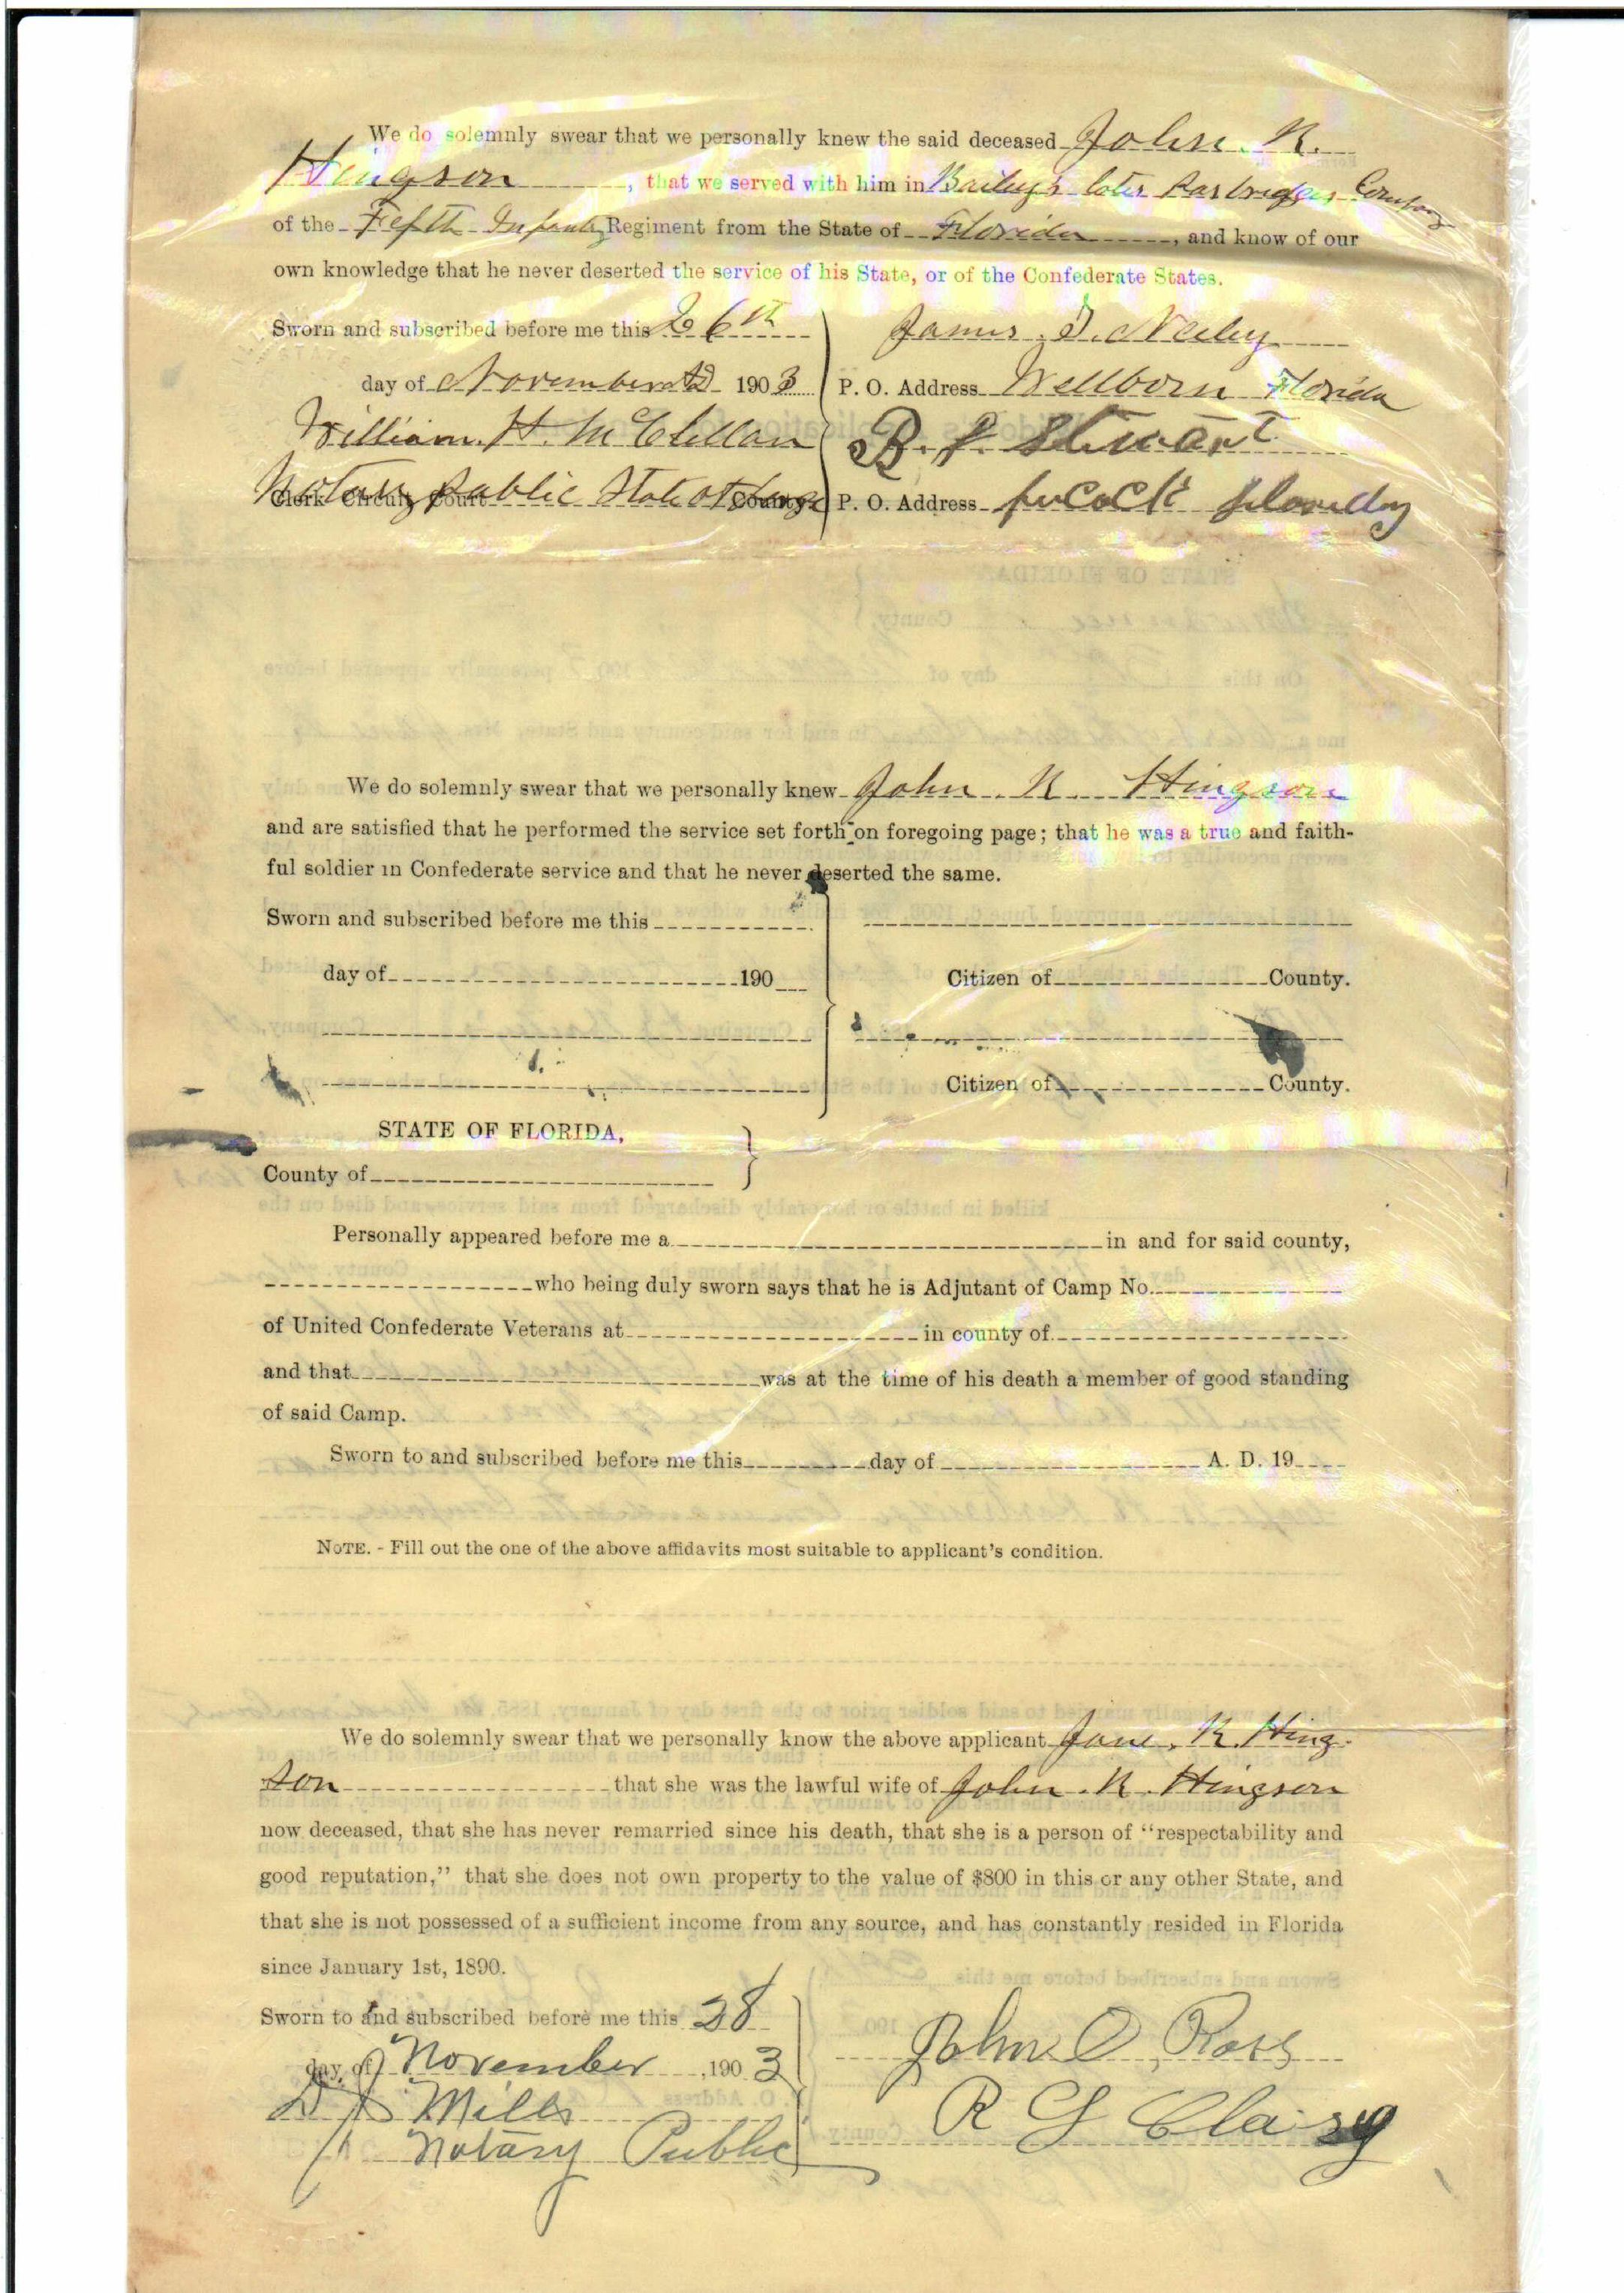 We do solemnly swear that we personally knew the said deceased John. R.
Hingson, that we served with him in Bailey's later Company
of the Fifth Infantry Regiment from the State of Florida, and know of our
own knowledge that he never deserted the service of his State, or of the Confederate States.
Sworn and subscribed before me this 26th
James
day of November AD 1903
P. O. Address Wellborn Florida
William. H. McClellan
B. Stewart
Notary public State at large
Clerk Circuit Court County
P. O. Address
We do solemnly swear that we personally knew John. R. Hingson
and are satisfied that he performed the service set forth on foregoing page; that he was a true and faith-
ful soldier in Confederate service and that he never deserted the same.
Sworn and subscribed before me this
day of 190
Citizen of County.
Citizen of County.
STATE OF FLORIDA,
County of
Personally appeared before me a in and for said county,
who being duly sworn says that he is Adjutant of Camp No.
of United Confederate Veterans at in county of
and that was at the time of his death a member of good standing
of said Camp.
Sworn to and subscribed before me this day of A. D. 19
NOTE. - Fill out the one of the above affidavits most suitable to applicant's condition.
We do solemnly swear that we personally know the above applicant Jane. R. Hing-
son that she was the lawful wife of John. R. Hingson
now deceased, that she has never remarried since his death, that she is a person of "respectability and
good reputation," that she does not own property to the value of $800 in this or any other State, and
that she is not possessed of a sufficient income from any source, and has constantly resided in Florida
since January 1st, 1890.
Sworn to and subscribed before me this 28
day of November, 1903
John O Ross
Mills
R G
Notary Public